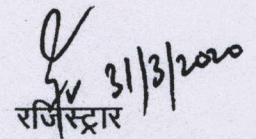 31/3/2020
रजिस्ट्रार